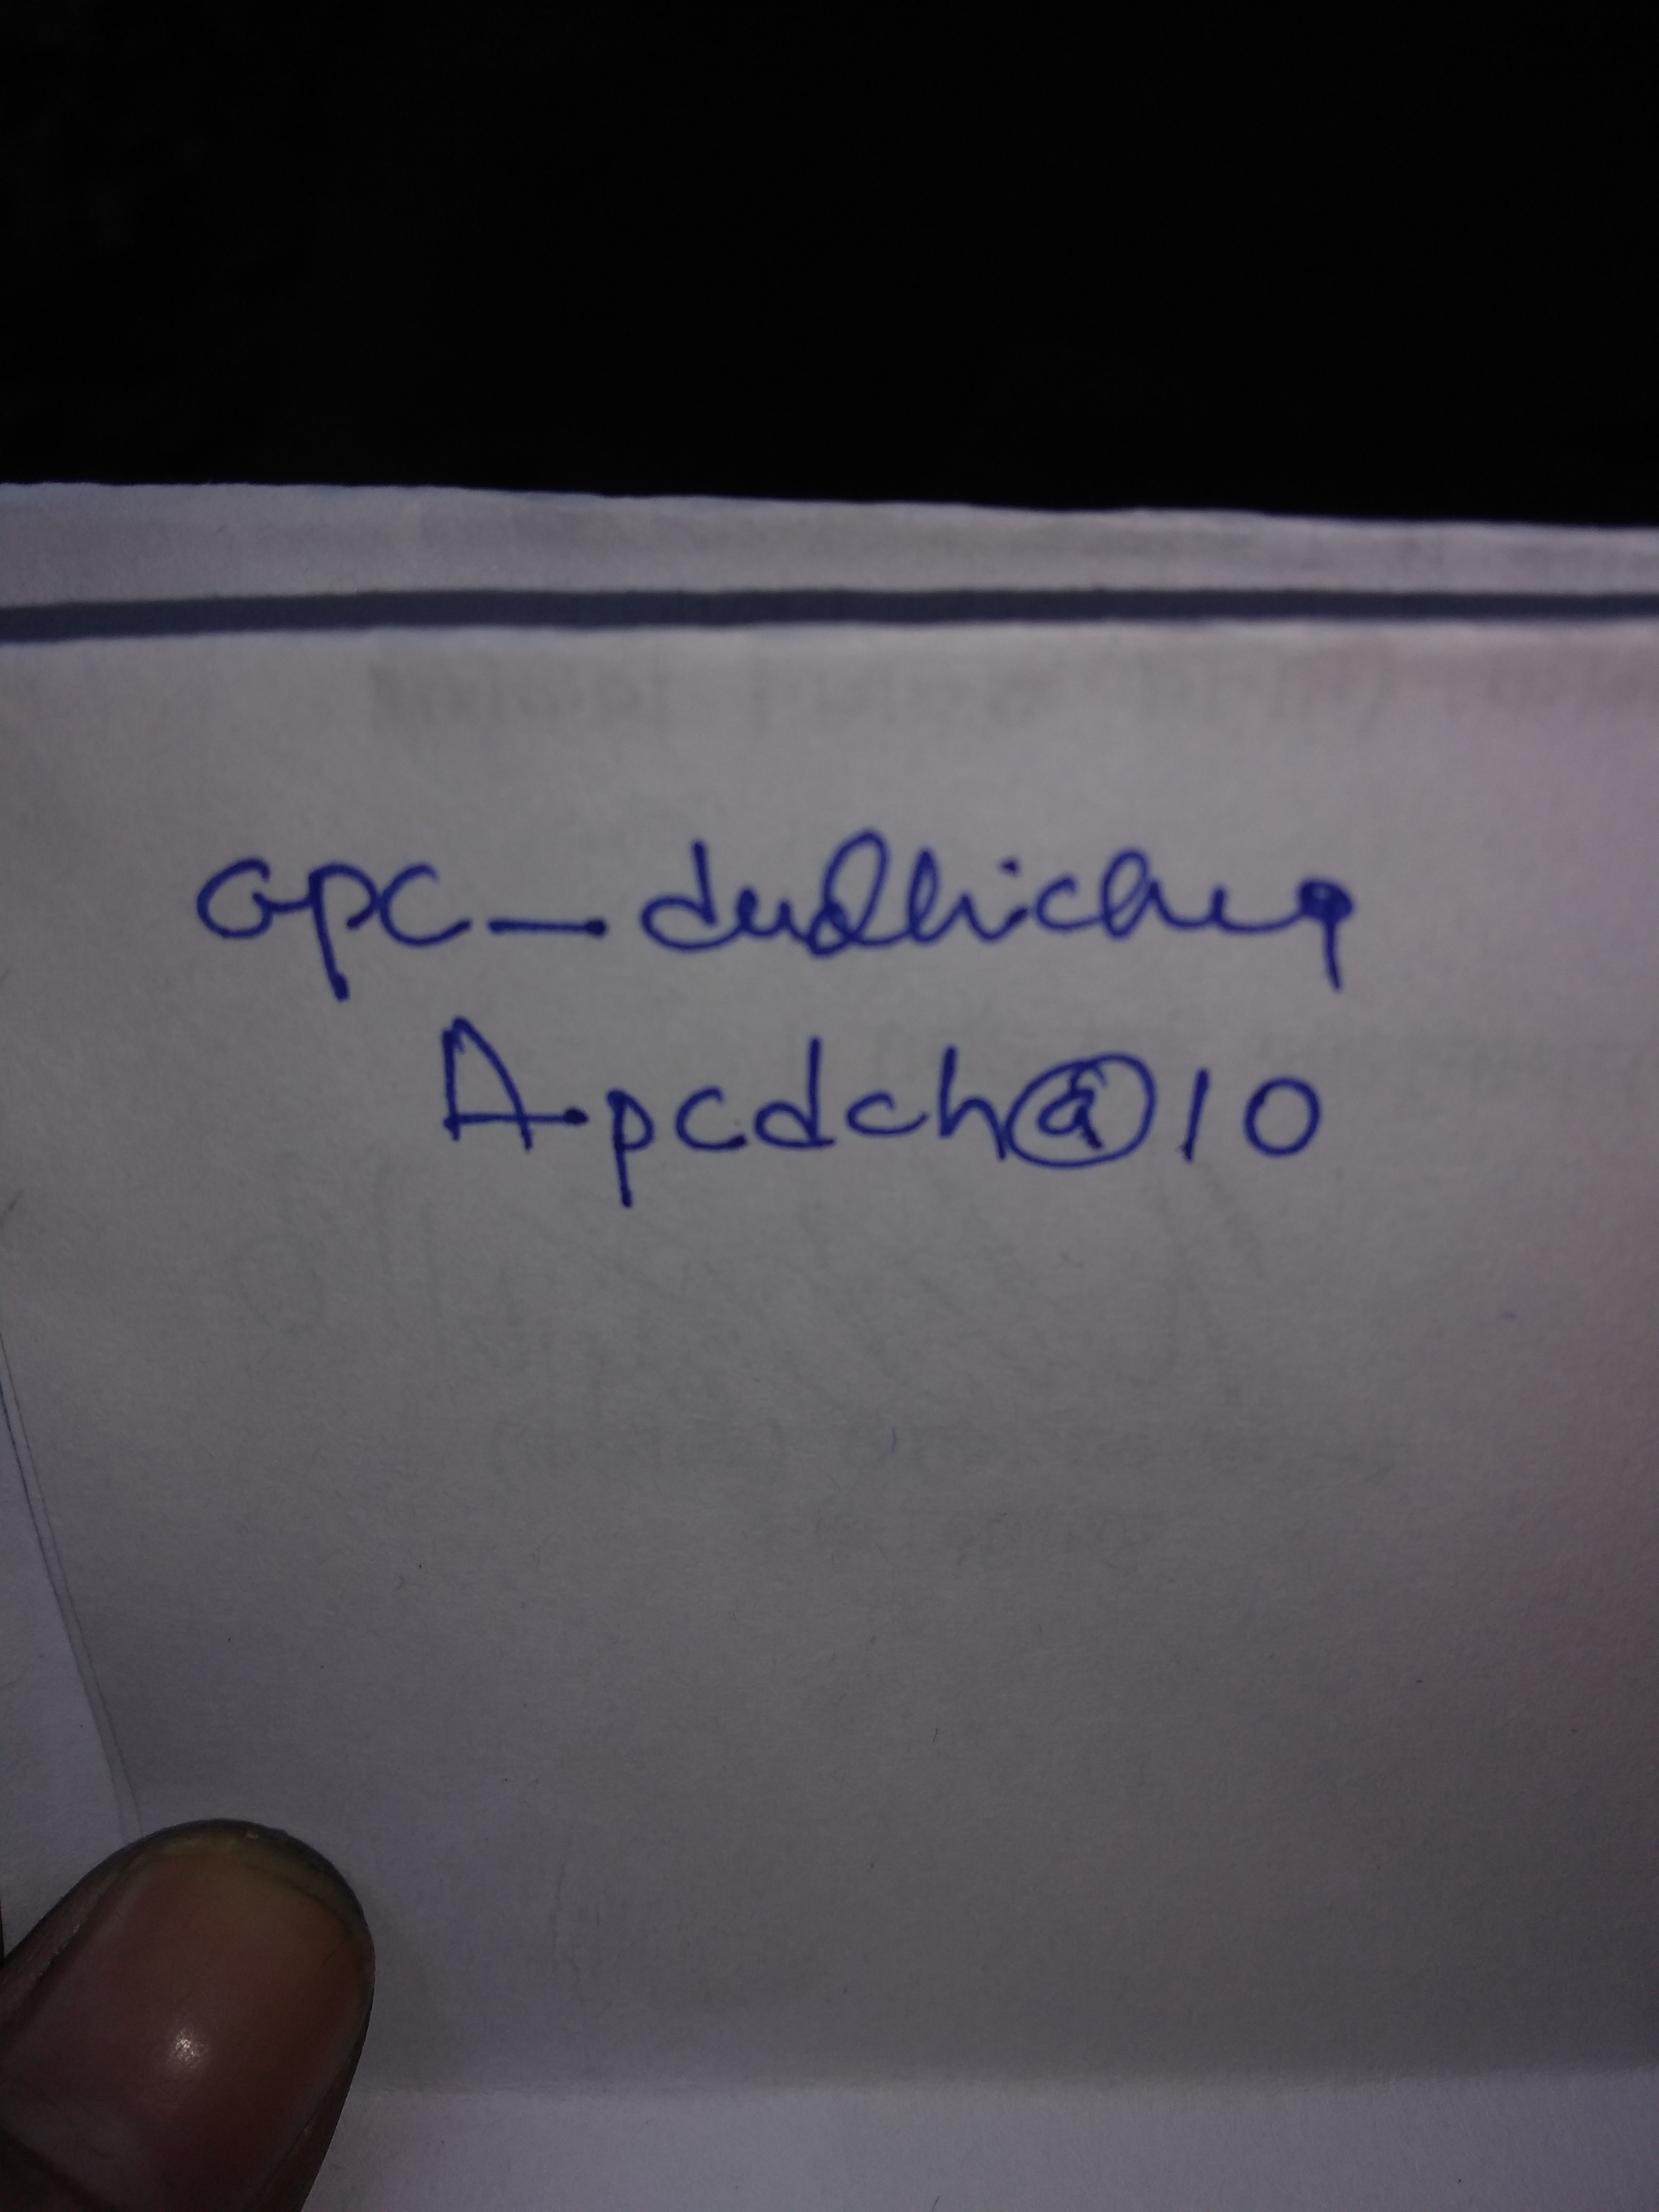 apc-dudhichuq
A.pcdch@10